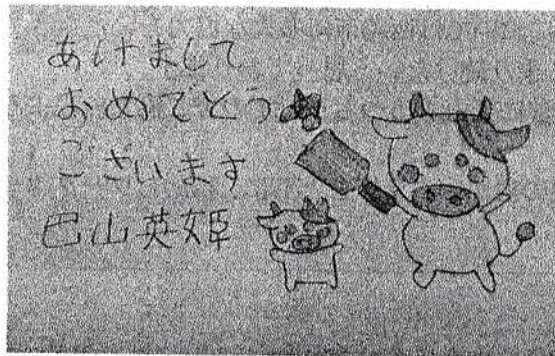 あけまして
おめでとう
ございます
巴山英姫